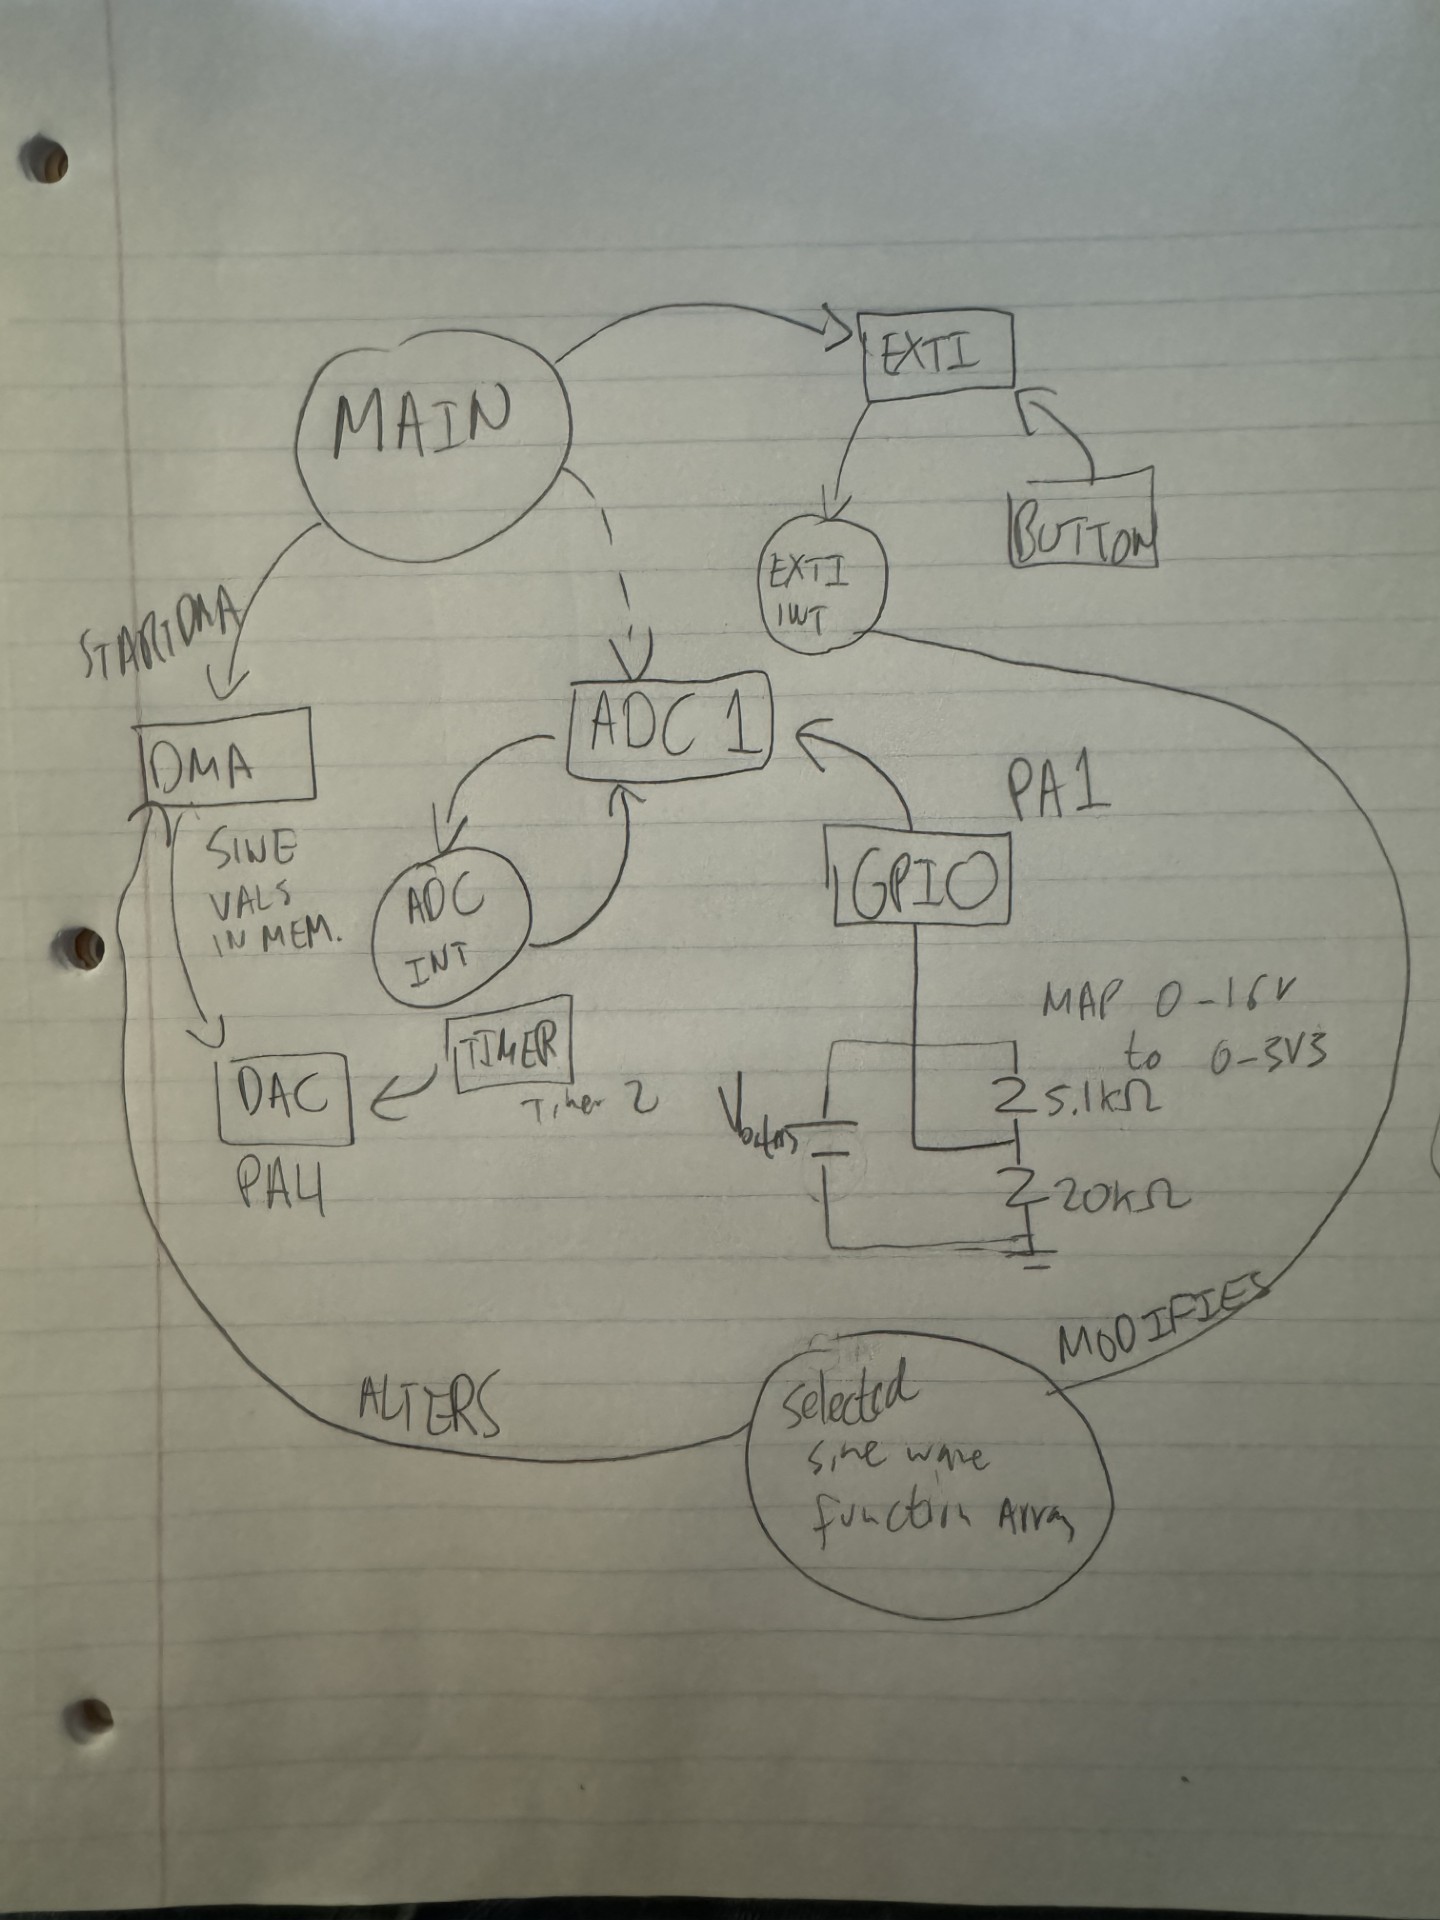 MAIN
EXTI
BUTTON
EXTI
INT
STARTDMA
DMA
ADC 1
SINE
VALS
IN MEM.
ADC
INT
PA1
GPIO
TIMER
Timer 2
DAC
PA4
MAP 0-16V
to 0-3V3
5.1kΩ
20kΩ
MODIFIES
ALTERS
Selected
sine wave
function Array